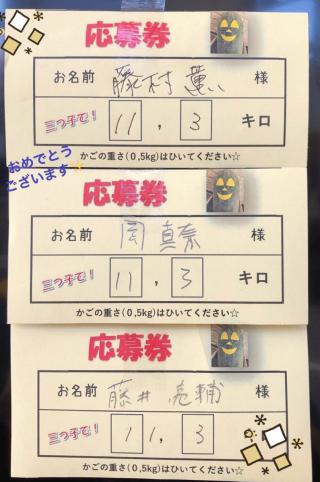 応募券
お名前 藤村 薫 様
三つ子で! 11, 3 キロ
かごの重さ(0,5kg)はひいてください☆
おめでとう
ございます✨
応募券
お名前 岡 真奈 様
三つ子で! 11, 3 キロ
かごの重さ(0,5kg)はひいてください☆
応募券
お名前 藤井 亮輔 様
三つ子で! 11, 3 キロ
かごの重さ(0,5kg)はひいてください☆